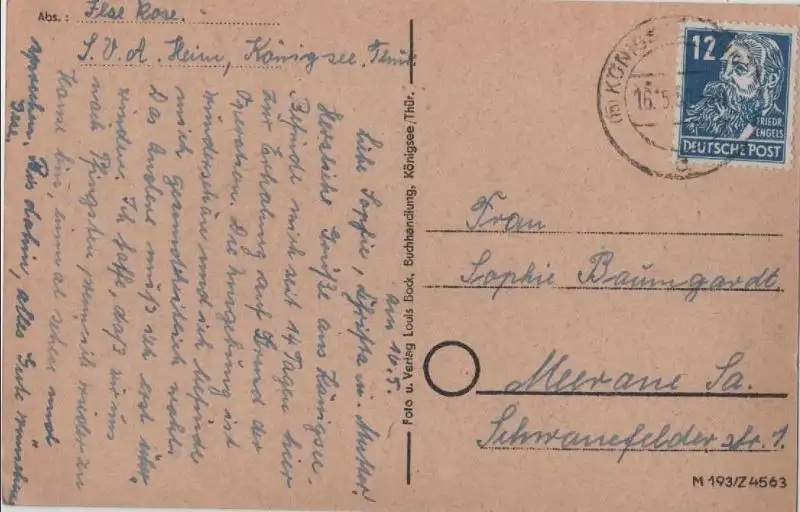 Abs.: Ilse Rose.
S.V.A. Heim, Königsee, Thür.
am 16.5.
Liebe Sophie, Christa u. Mutter!
Herzliche Grüße aus Königsee.
Befinde mich seit 14 Tagen hier
zur Erholung auf Grund der
Operation. Die Umgebung ist
wunderschön und ich befinde
mich gesundheitlich wohler.
Das Andere muß sich erst über-
winden. Ich hoffe, daß wir uns
nach Pfingsten, wenn ich wieder zu
Hause bin, einmal sehen und
sprechen. Bis dahin, alles Gute wünschen
Foto u. Verlag Louis Bock, Buchhandlung, Königsee/Thür.
(15) KÖNIG
16.5.
a
12
FRIEDR.
ENGELS
DEUTSCHE POST
Frau
Sophie Baumgardt
Meerane Sa.
Schwanefelder str. 1.
M 193/Z 4563